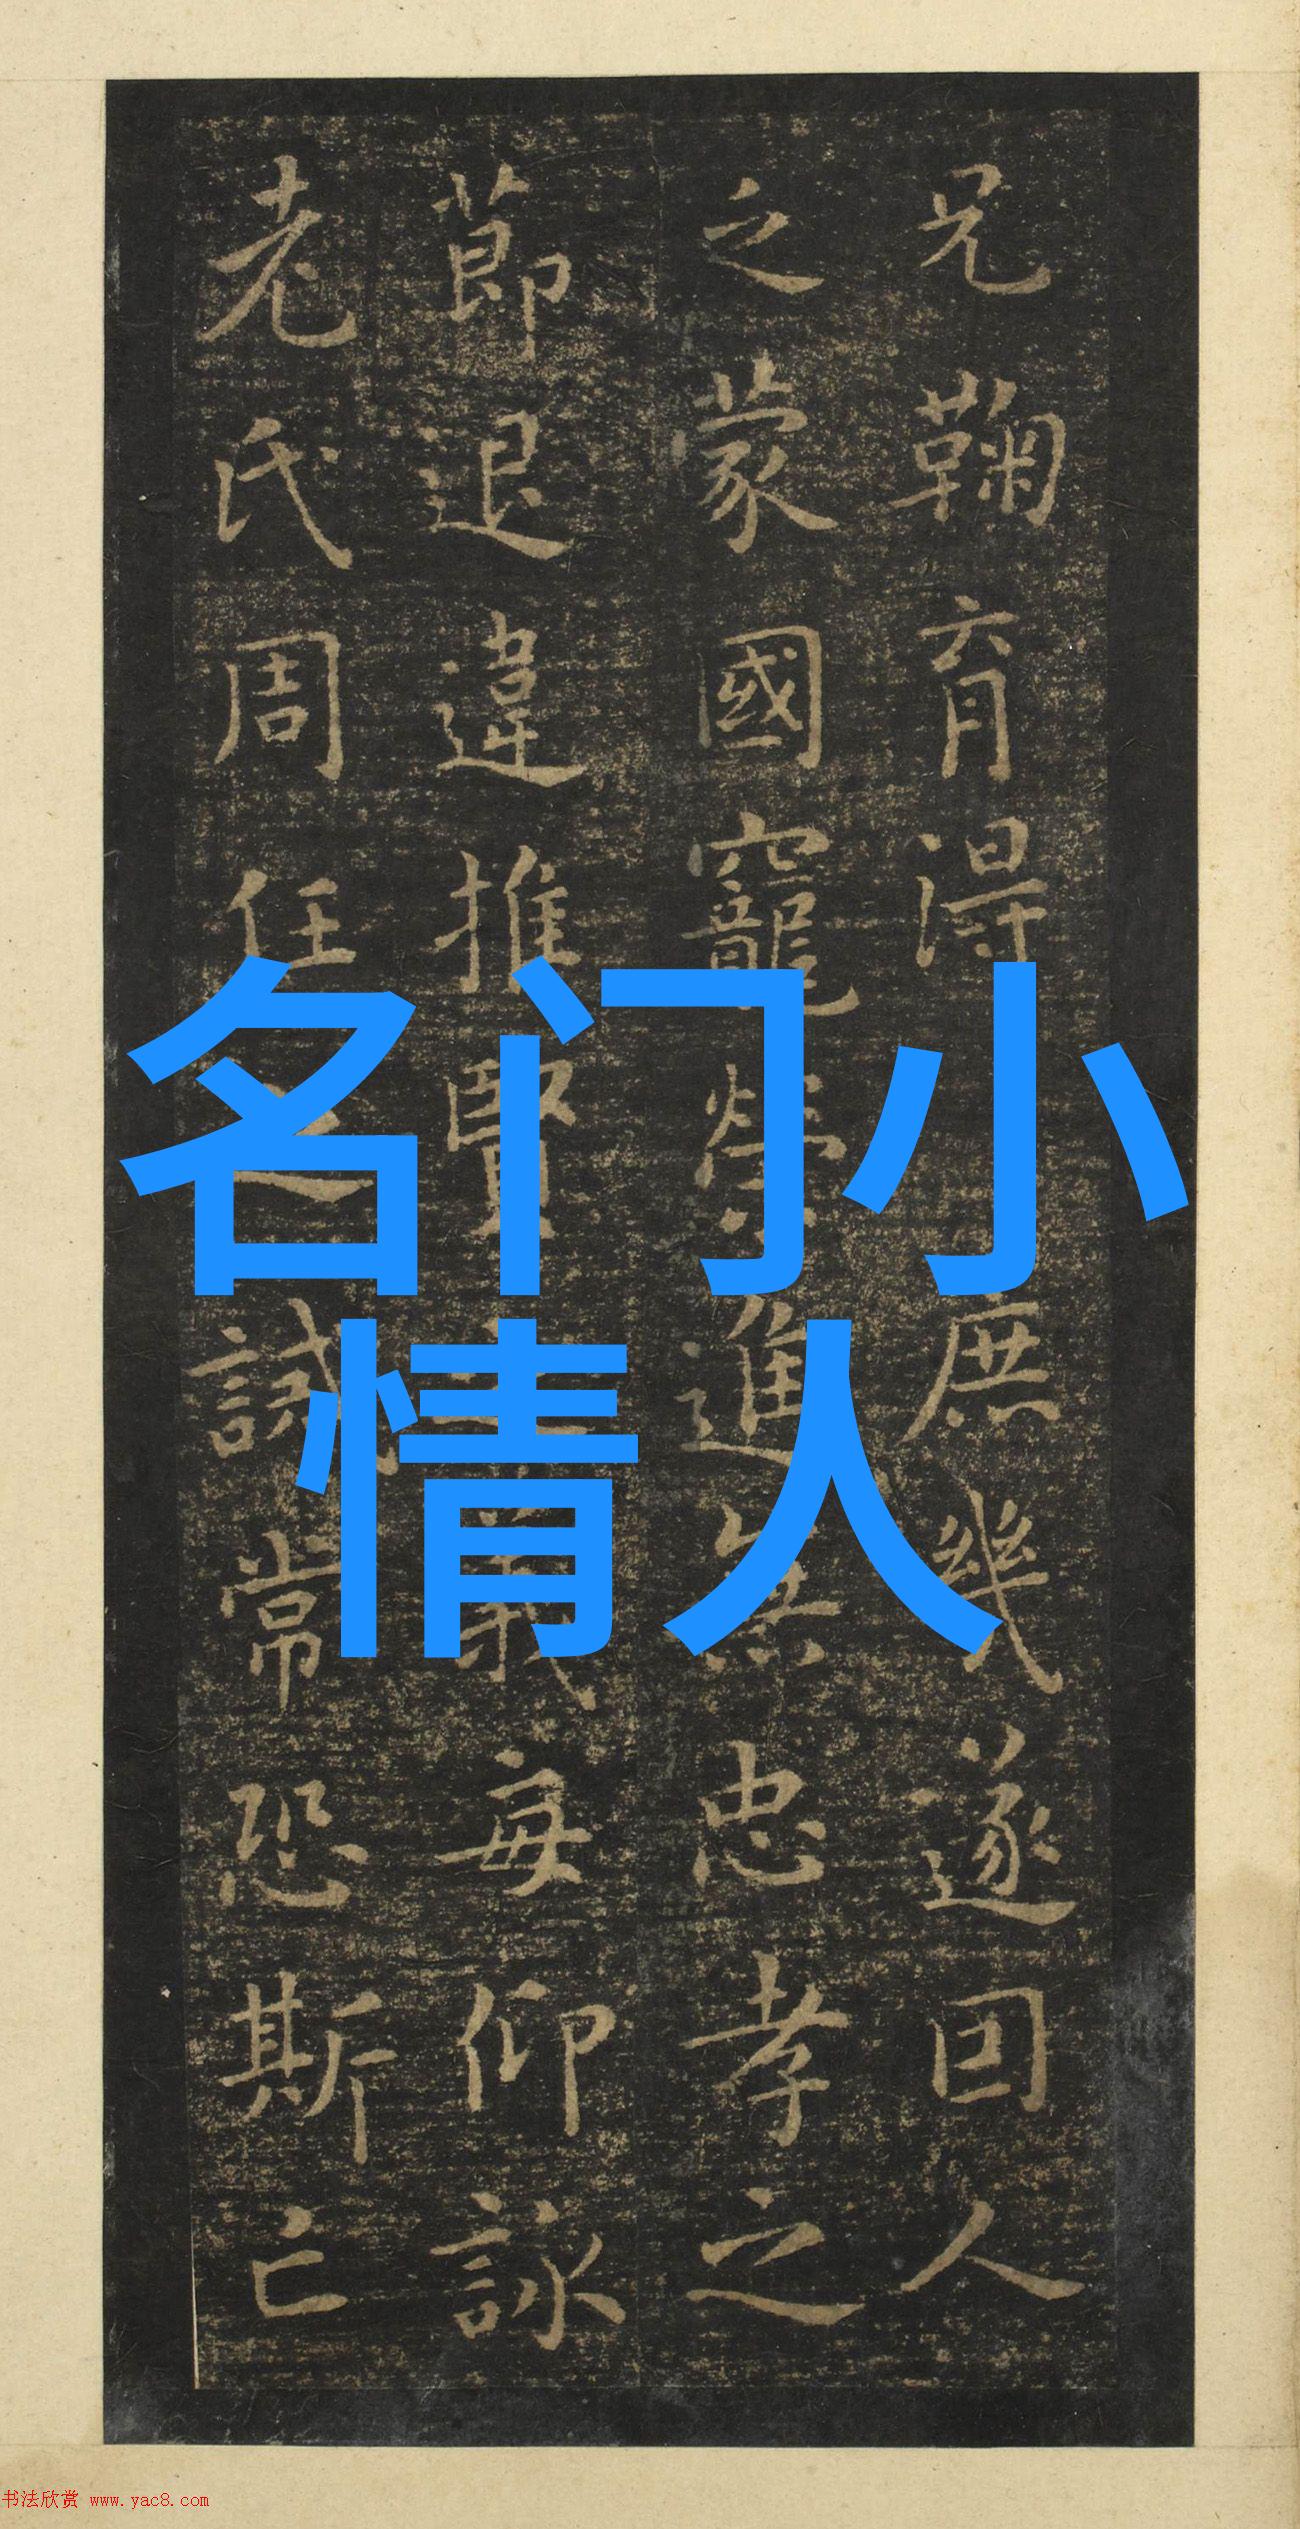 兄鞠育得庶幾遂因人
乏蒙國寵榮進無忠孝之
節退違推賢義每仰詠
老氏周任之誡常恐斯亡
名门小
情人
书法欣赏 www.yac8.com